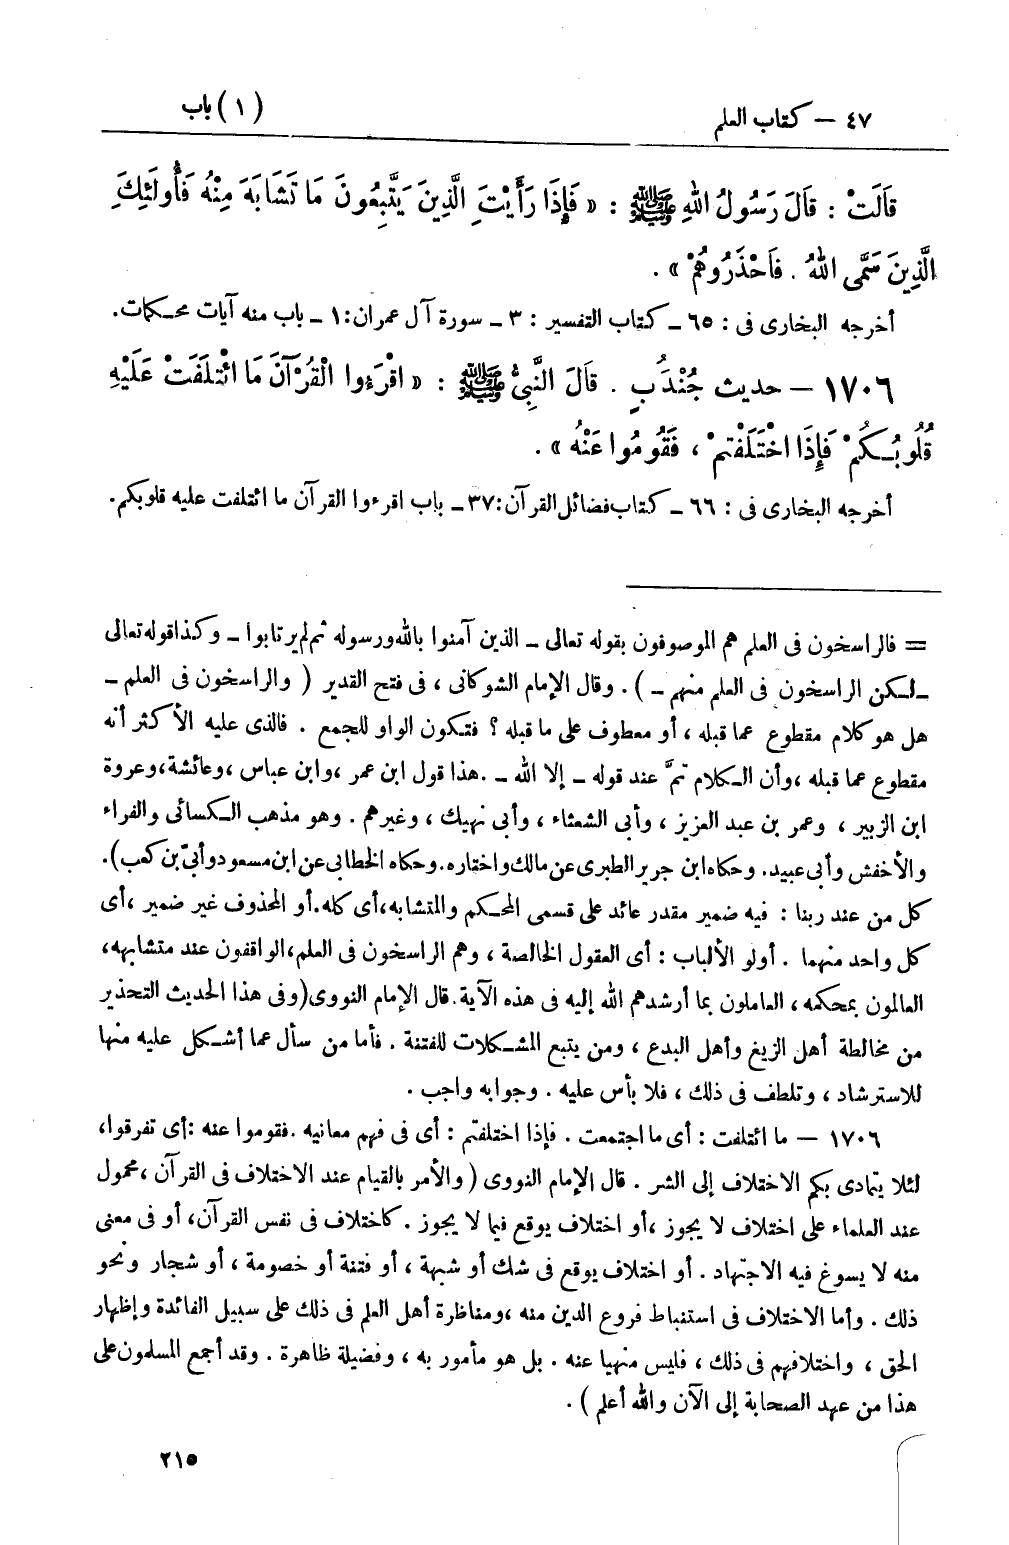 ٤٧ – كتاب العلم (١) باب
قَالَتْ : قَالَ رَسُولُ اللهِ ﷺ : « فَإِذَا رَأَيْتَ الَّذِينَ يَتَّبِعُونَ مَا تَشَابَهَ مِنْهُ فَأُولَئِكَ
الَّذِينَ سَمَّى اللهُ . فَاحْذَرُوهُمْ » .
أخرجه البخارى فى : ٦٥ ـ كتاب التفسير : ٣ ـ سورة آل عمران : ١ ـ باب منه آيات محكمات .
١٧٠٦ – حديث جُنْدَبٍ . قَالَ النَّبِىُّ ﷺ : « اقْرَءُوا الْقُرْآنَ مَا ائْتَلَفَتْ عَلَيْهِ
قُلُوبُكُمْ فَإِذَا اخْتَلَفْتمْ ، فَقُومُوا عَنْهُ » .
أخرجه البخارى فى : ٦٦ ـ كتاب فضائل القرآن : ٣٧ ـ باب اقرءوا القرآن ما ائتلفت عليه قلوبكم .
= فالراسخون فى العلم هم الموصوفون بقوله تعالى ـ الذين آمنوا بالله ورسوله ثم لم يرتابوا ـ وكذا قوله تعالى
ـ لكن الراسخون فى العلم منهم ـ ) . وقال الإمام الشوكانى ، فى فتح القدير ( والراسخون فى العلم ـ
هل هو كلام مقطوع عما قبله ، أو معطوف على ما قبله ؟ فتكون الواو للجمع . فالذى عليه الأكثر أنه
مقطوع عما قبله ، وأن الكلام تمَّ عند قوله ـ إلا الله ـ . هذا قول ابن عمر ، وابن عباس ، وعائشة ، وعروة
ابن الزبير ، وعمر بن عبد العزيز ، وأبى الشعثاء ، وأبى نهيك ، وغيرهم . وهو مذهب الكسائى والفراء
والأخفش وأبى عبيد . وحكاه ابن جرير الطبرى عن مالك واختاره . وحكاه الخطابى عن ابن مسعود وأبىّ بن كعب ) .
كل من عند ربنا : فيه ضمير مقدر عائد على قسمى المحكم والمتشابه ، أى كله . أو المحذوف غير ضمير ، أى
كل واحد منهما . أولو الألباب : أى العقول الخالصة ، وهم الراسخون فى العلم ، الواقفون عند متشابهه ،
العالمون بمحكمه ، العاملون بما أرشدهم الله إليه فى هذه الآية . قال الإمام النووى ( وفى هذا الحديث التحذير
من مخالطة أهل الزيغ وأهل البدع ، ومن يتبع المشكلات للفتنة . فأما من سأل عما أشكل عليه منها
للاسترشاد ، وتلطف فى ذلك ، فلا بأس عليه . وجوابه واجب .
١٧٠٦ – ما ائتلفت : أى ما اجتمعت . فإذا اختلفتم : أى فى فهم معانيه . فقوموا عنه : أى تفرقوا ،
لئلا يتمادى بكم الاختلاف إلى الشر . قال الإمام النووى ( والأمر بالقيام عند الاختلاف فى القرآن ، محمول
عند العلماء على اختلاف لا يجوز ، أو اختلاف يوقع فيما لا يجوز . كاختلاف فى نفس القرآن ، أو فى معنى
منه لا يسوغ فيه الاجتهاد . أو اختلاف يوقع فى شك أو شبهة ، أو فتنة أو خصومة ، أو شجار ونحو
ذلك . وأما الاختلاف فى استنباط فروع الدين منه ، ومناظرة أهل العلم فى ذلك على سبيل الفائدة وإظهار
الحق ، واختلافهم فى ذلك ، فليس منهيا عنه . بل هو مأمور به ، وفضيلة ظاهرة . وقد أجمع المسلمون على
هذا من عهد الصحابة إلى الآن والله أعلم ) .
٢١٥